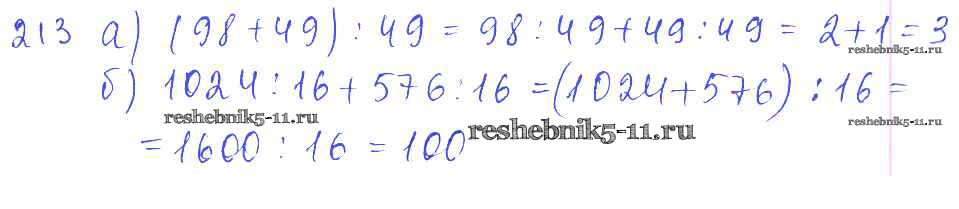 213 а) (98 + 49) : 49 = 98 : 49 + 49 : 49 = 2 + 1 = 3
reshebnik5-11.ru
б) 1024 : 16 + 576 : 16 = (1024 + 576) : 16 =
reshebnik5-11.ru
reshebnik5-11.ru
reshebnik5-11.ru
= 1600 : 16 = 100